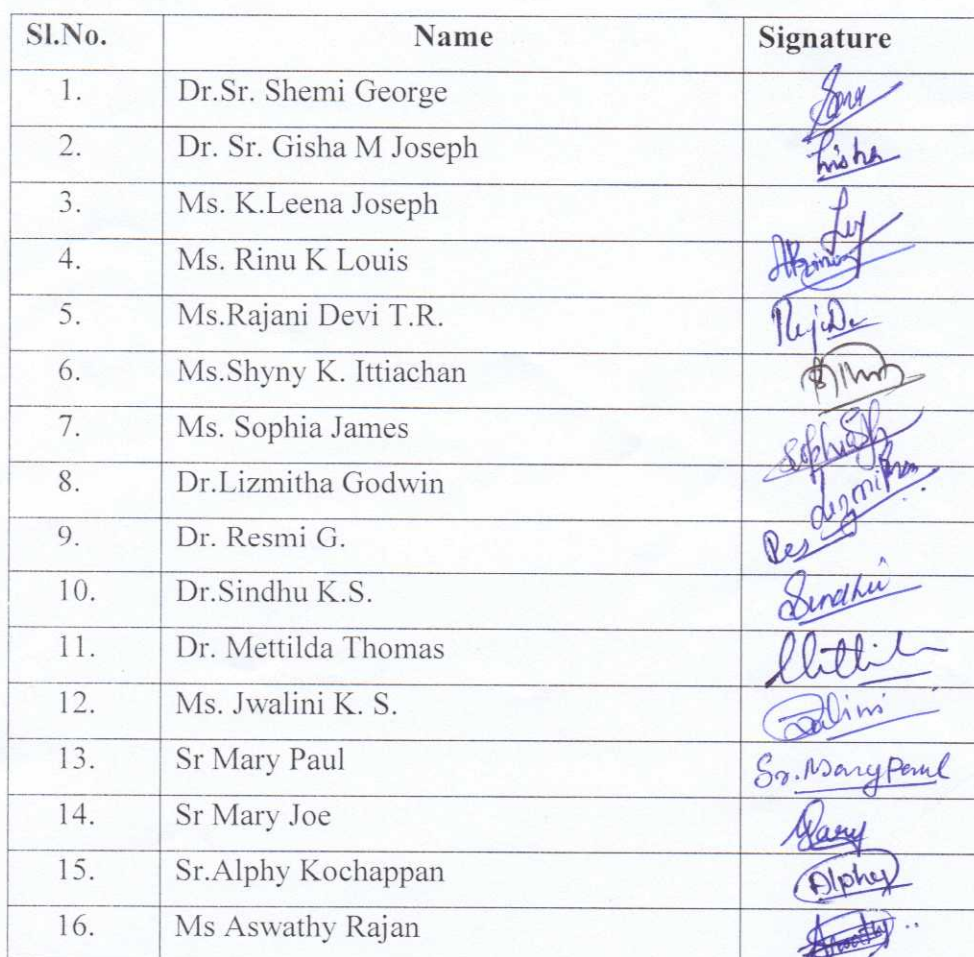 Sl.No. Name Signature
1. Dr.Sr. Shemi George
2. Dr. Sr. Gisha M Joseph
3. Ms. K.Leena Joseph
4. Ms. Rinu K Louis
5. Ms.Rajani Devi T.R.
6. Ms.Shyny K. Ittiachan
7. Ms. Sophia James
8. Dr.Lizmitha Godwin
9. Dr. Resmi G. Res
10. Dr.Sindhu K.S. Sindhu
11. Dr. Mettilda Thomas
12. Ms. Jwalini K. S.
13. Sr Mary Paul Sr. Mary Paul
14. Sr Mary Joe Mary
15. Sr.Alphy Kochappan Alphy
16. Ms Aswathy Rajan